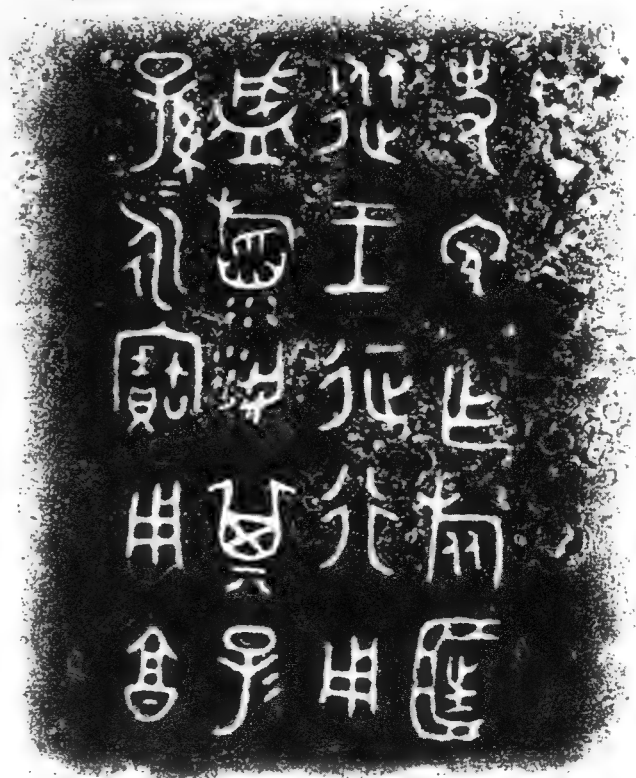 史免乍旅匡
從王征行用
盛稻粱其子=
孫=永寶用享